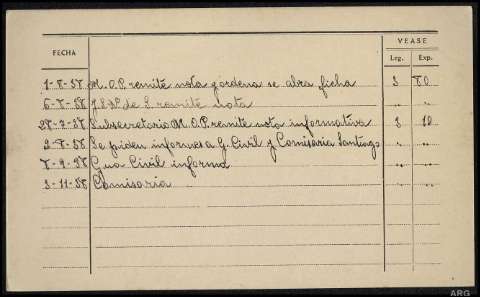 FECHA VEASE
Leg. Exp.
M. O. P. remite nota y ordena se abra ficha 3 80
remite nota " "
Subsecretario M. O. P. remite nota informativa 3 10
Se piden informes a G. Civil y Comisaria Santiago " "
7-9-38 Gua Civil informa " "
3-11-38 Comisaria " "
ARG